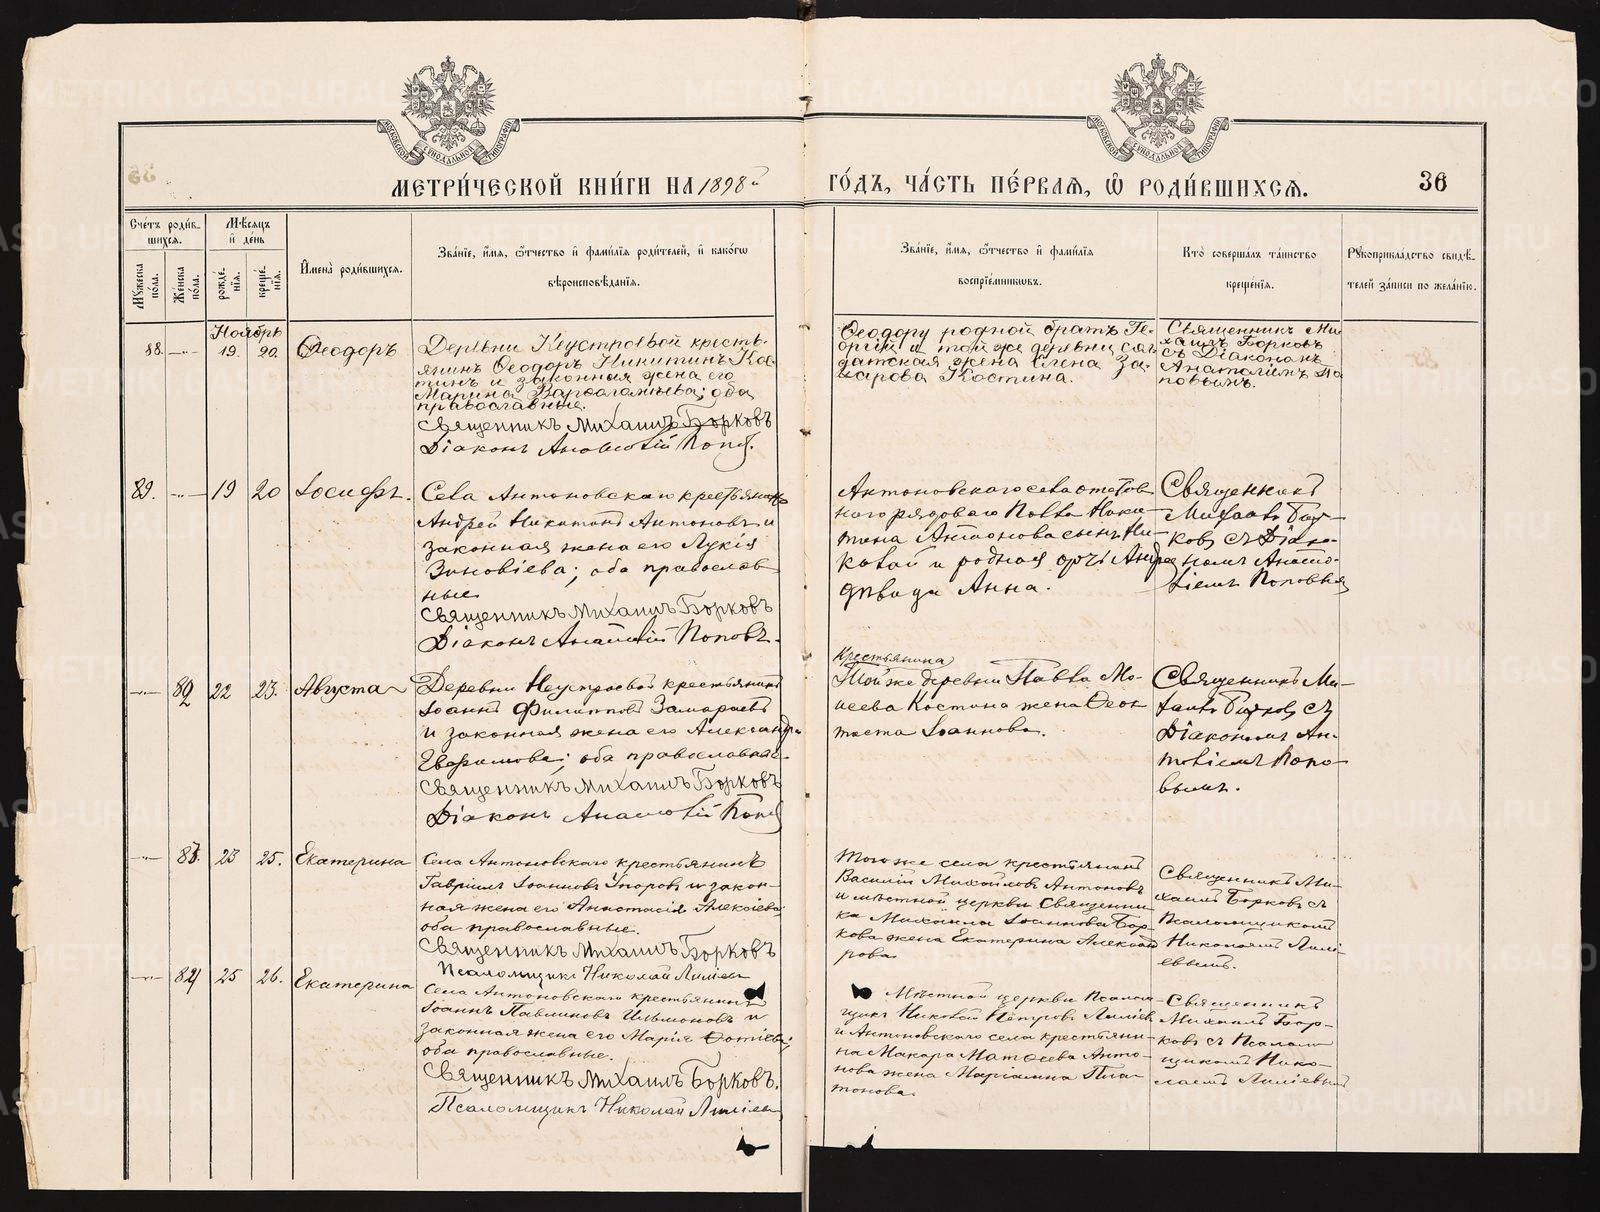 МЕТРИ́ЧЕСКОЙ КНИ́ГИ НА 1898й
ГО́ДЪ, ЧА́СТЬ ПЕ́РВАѦ, Ѿ РОДИ́ВШИХСѦ.
36
Сче́тъ роди́в-
шихся.
Мѣ́сяцъ
и҆ де́нь
Мꙋ́жеска по́ла.
Же́нска по́ла.
рожде́нїѧ.
креще́нїѧ.
И҆мена̀ роди́вшихсѧ.
Зва́нїе, и҆́мѧ, ѻ҆́тчество и҆ фами́лїѧ роди́телей, и҆ како́гѡ
вѣроисповѣ́данїѧ.
Зва́нїе, и҆́мѧ, ѻ҆́тчество и҆ фами́лїѧ
воспрїе́мникѡвъ.
Кто̀ соверша́лъ та́инство
креще́нїѧ.
Рꙋкоприкла́дство свидѣ́-
телей за́писи по жела́нїю.
Ноябрь
88. 19. 20. Ѳеодоръ
Деревни Неустроевой кресть-
янинъ Ѳеодоръ Никитинъ Кос-
тинъ и законная жена его
Марина Варѳоломѣева; оба
православные.
Священникъ Михаилъ Борковъ
Діаконъ Анатолій Поповъ.
Ѳеодору родной братъ Ге-
оргій и той же деревни сол-
датская жена Елена За-
харова Костина.
Священникъ Ми-
хаилъ Борковъ
съ Діакономъ
Анатоліемъ По
повымъ.
89. 19 20 Іосифъ.
Села Антоновскаго крестьянинъ
Андрей Никитинъ Антоновъ и
законная жена его Лукія
Зиновіева; оба православ-
ные
Священникъ Михаилъ Борковъ
Діаконъ Анатолій Поповъ.
Антоновскаго села отстав
наго рядоваго Павла Ники-
тина Антонова сынъ Ни-
колай и родная Андре
Анна.
Священникъ
Михаилъ Бор-
ковъ съ Діако-
номъ Анато-
ліемъ Поповымъ
82 22 23. Августа
Деревни Неустроевой крестьянинъ
Іоаннъ Филипповъ Замараевъ
и законная жена его Александра
Евѳимова; оба православные.
Священникъ Михаилъ Борковъ
Діаконъ Анатолій Поповъ
Крестьянина
Той же деревни Павла Мо-
исеева Костина жена Ѳеок
тиста Іоаннова.
Священникъ Ми-
хаилъ Борковъ съ
Діакономъ Ан-
толіемъ Попо-
вымъ.
83. 23 25. Екатерина
Села Антоновскаго крестьянинъ
Гавріилъ Іоанновъ и закон-
ная жена его Анастасія Алексіева
оба православные.
Священникъ Михаилъ Борковъ
Псаломщикъ Николай Лиліевъ
Того же села крестьянинъ
Василій Михайловъ Антоновъ
и мѣстной церкви Священни-
ка Михаила Іоаннова Бор-
кова жена Екатерина Александ
рова
Священникъ Ми-
хаилъ Борковъ съ
Псаломщикомъ
Николаемъ Лилі-
евымъ.
84 25 26. Екатерина
Села Антоновскаго крестьянинъ
Іоаннъ Павлиновъ и
законная жена его Марія Фотіева;
оба православные.
Священникъ Михаилъ Борковъ.
Псаломщикъ Николай Лиліевъ
Мѣстной церкви Псалом-
щикъ Николай Петровъ Лиліевъ
и Антоновскаго села крестьяни-
на Макара Матѳеева Анто-
нова жена Маріамна Пла-
тонова.
Священникъ
Михаилъ Бор-
ковъ съ Псалом
щикомъ Нико-
лаемъ Лиліевымъ
METRIKI.GASO-URAL.RU